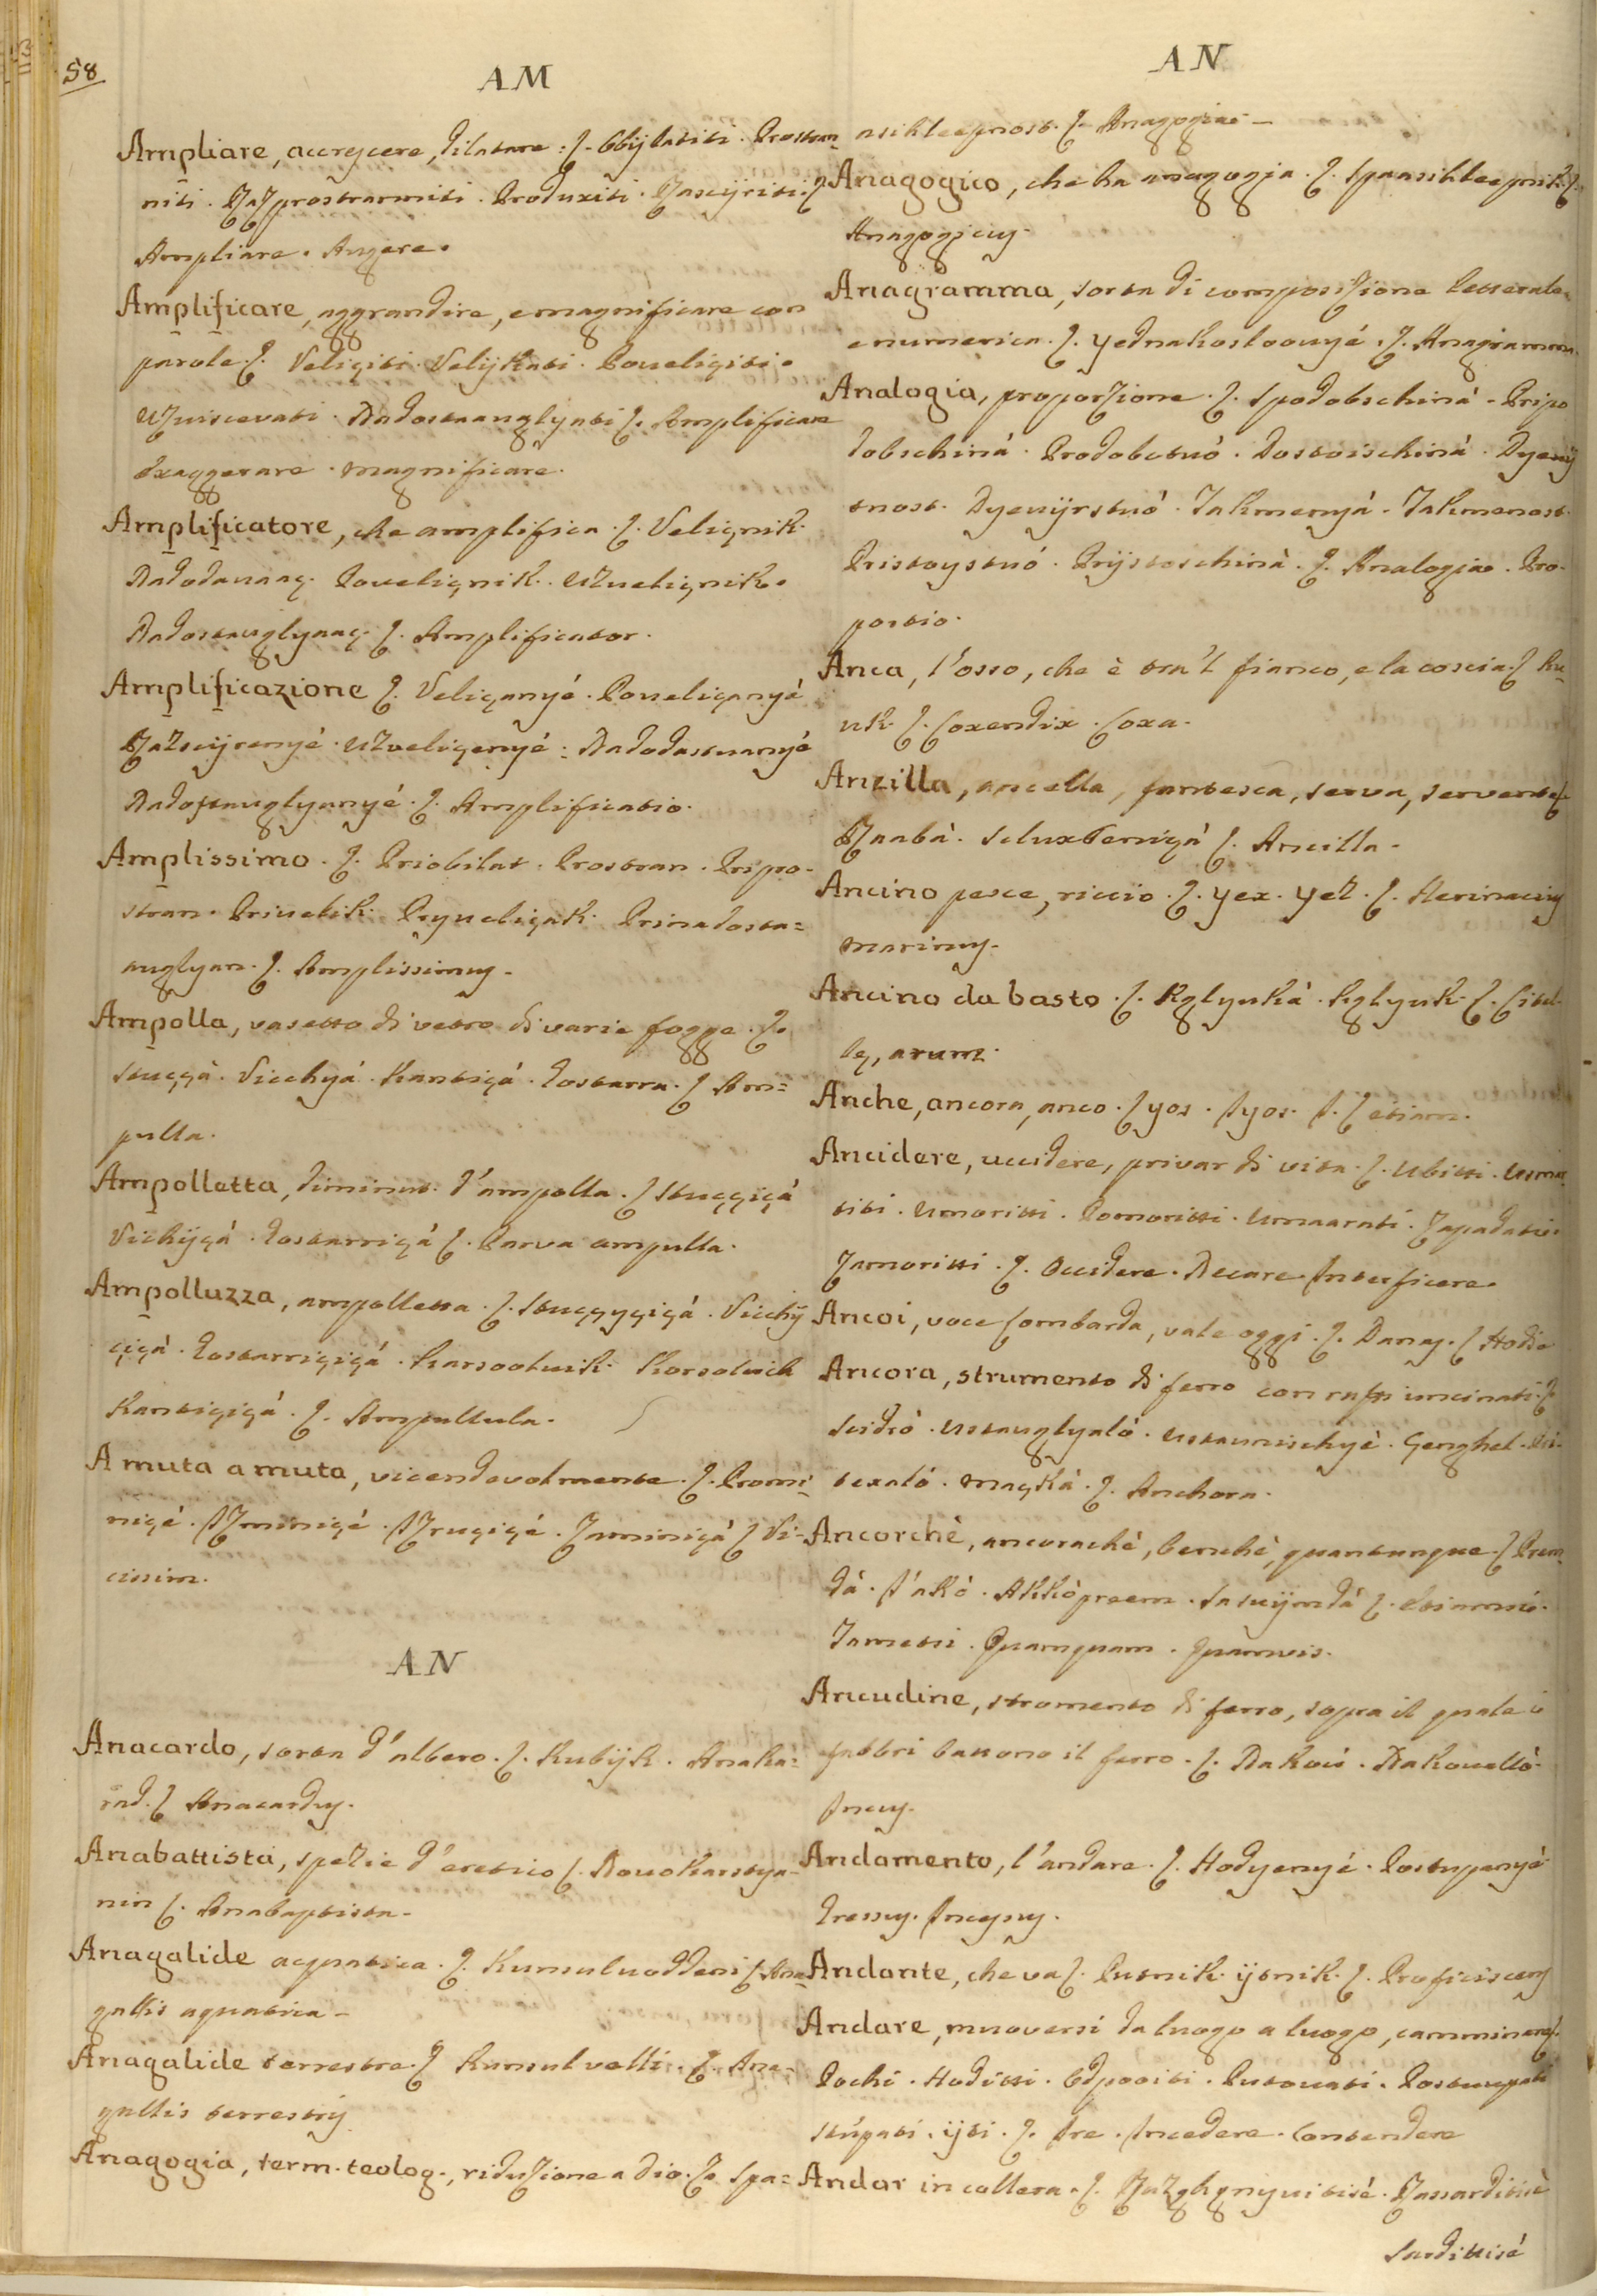 58
AM
Ampliare, accrescere, dilatare. I. Obijlatiti. Prostran=
niti. Razprostranniti. Produxiti. Rasciriti. L.
Ampliare. Augere.
Amplificare, aggrandire, e magnificare con
parole. I. Veliçiti. Velijkati. Poveliçiti.
Uzviscevati. Nadostavglyati. L. Amplificare
Exaggerare. Magnificare.
Amplificatore, che amplifica. I. Veliçnik.
Nadodavaaç. Poveliçnik. Uzveliçnik.
Nadostavglyaaç. L. Amplificator.
Amplificazione I. Veliçanyé. Poveliçanyé
Razscijrenyé. Uzveliçenyé. Nadodastvanyé
Nadostavglyanyé. L. Amplificatio.
Amplissimo. I. Priobilat. Prostran. Pripro-
stran. Privelik. Pryveliçak. Prinadosta=
avglyan. L. Amplissimus.
Ampolla, vasetto di vetro di varie fogge. I.
Stuççà. Vicchyá. Kantiçá. Tostarra. L. Am=
pulla.
Ampolletta, diminut. d'ampolla. I. Stuççiçá
Vichijçá. Tostarriçá L. Parva ampulla.
Ampolluzza, ampolletta. I. Stuççyçiçá. Vicchij
çiçá. Tostarriçiçá. Karsoolvik. Korsolvich
Kantiçiçá. L. Ampullula.
A muta a muta, vicendevolmente. I. Promi=
niçé. Izminiçé. Izrugiçé. Zaminiçá L. Vi-
cissim.
AN
Anacardo, sorta d'albero. I. Kubijk. Anaka=
rad. L Anacardus.
Anabattista, spezie d'eretico I. Novokarstya-
nin L. Anabaptista.
Anagalide acquatica. I. Kumulvoddeni L. Ana=
gallis aquatica
Anagalide terrestre. I Kumulvelli. L. Ana-
gallis terrestris
Anagogia, term. teolog., riduzione a Dio. I. Spa=
AN
asikleepnost. L. Anagogiae.
Anagogico, che ha anagogia. I. Spaasikleepnik. L.
Anagogicus.
Anagramma, sorta di composizione letterale,
e numerica. I. Yednakoslovvyé. L. Anagramma.
Analogia, proporzione. I. Spodobschiná. Pripo
dobschiná. Prodobstvó. Dostoischiná. Dyenij
tnost. Dyenijrstvó. Takmenyá. Takmenost.
Pristoystvó. Prijstoschinà. L. Analogiae. Pro-
portio.
Anca, l'osso, che è tra'l fianco, e la coscia. I Ku=
uk. L. Coxendix. Coxa.
Anzilla, ancella, fantesca, serva, servente. I.
Raabá. Sluxbeniçá L. Ancilla.
Ancino pesce, riccio. I. Yex. Yež. L. Herinaceus
marinus.
Ancino da basto. I. Kglyuká. Kglyuk. L. Citel-
læ, arum.
Anche, ancora, anco. I yos. Iyos. I. L etiam.
Ancidere, uccidere, privar di vita. I. Ubitti. Usmar
titi. Umoritti. Pomoritti. Umaarati. Zapadatti.
Zamoritti. L. Occidere. Necare. Interficere.
Ancoi, voce Lombarda, vale oggi. I. Danas. L Hodie
Ancora, strumento di ferro con raffi uncinati. I.
Sidró. Ustavglyaló. Ustavnischyé. Genghel. Pri-
texaló. Maçká. L. Anchora.
Ancorchè, ancorachè, benchè, quantunque. I Prem
dà. I'akó. Akkópreem. Sasvijmdá L. Etiamsi.
Tametsi. Quamquam. Quamvis.
Ancudine, stromento di ferro, sopra il quale i
fabbri battono il ferro. I. Nakov. Nakovalló.
Incus.
Andamento, l'andare. I. Hodyenyé. Postupanyé
Gressus. Incessus.
Andante, che va I. Putnik. ijtnik. L. Proficiscens
Andare, muoversi da luogo a luogo, camminare. I.
Pochi. Hoditti. Odpooiti. Putovati. Postuupati
stúpati. ijti. L. Ire. Incedere. Contendere
Andar in collera. I. Razghgnyvitisé. Rassarditisè
Sardittisé